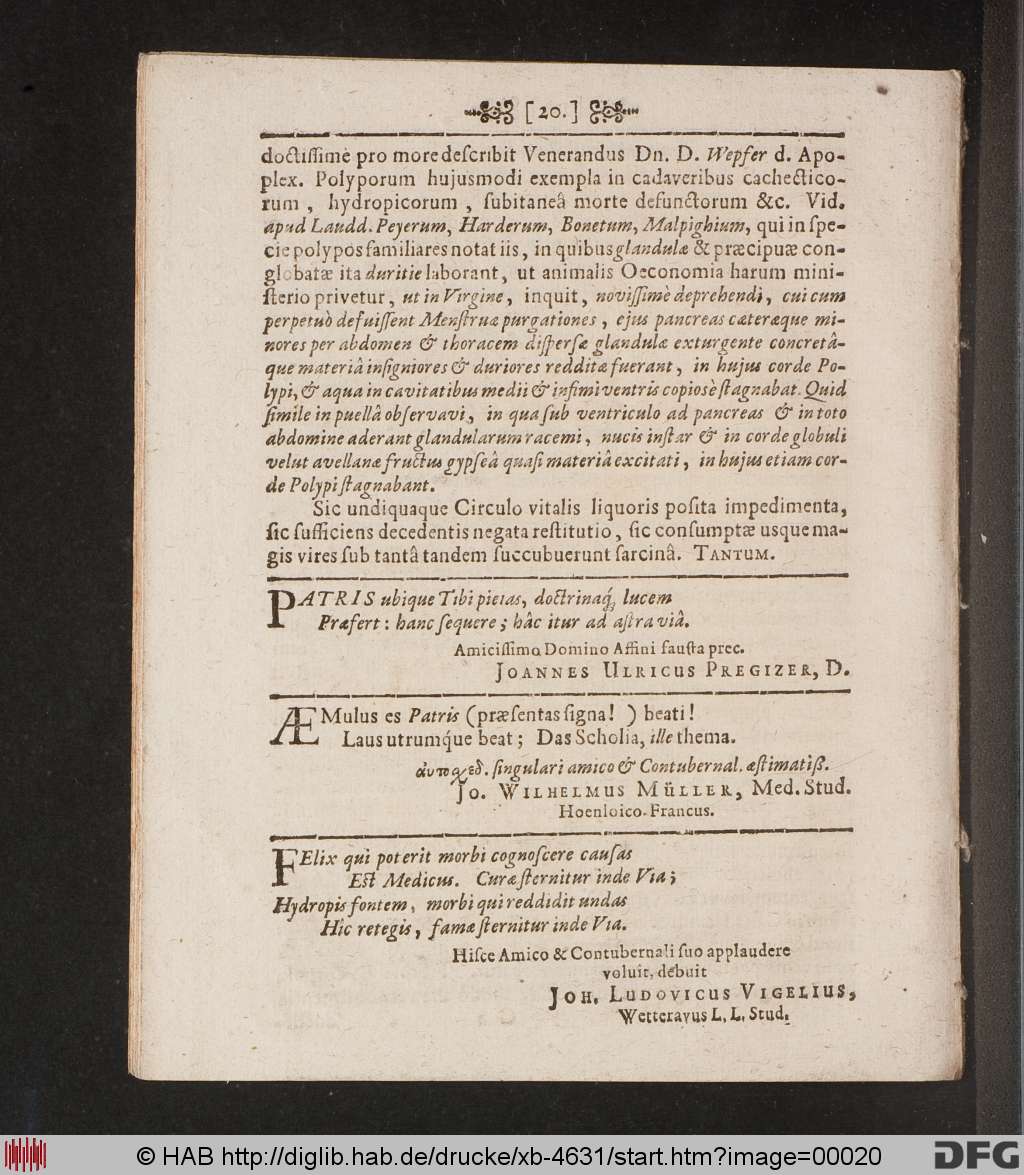 [20.]
doctiſſimè pro more deſcribit Venerandus Dn. D. Wepfer d. Apo-
plex. Polyporum hujusmodi exempla in cadaveribus cachectico-
rum , hydropicorum , ſubitaneâ morte defunctorum &c. Vid.
apud Laudd. Peyerum, Harderum, Bonetum, Malpighium, qui in ſpe-
cie polypos familiares notat iis, in quibus glandulæ & præcipuæ con-
globatæ ita duritie laborant, ut animalis Oeconomia harum mini-
ſterio privetur, ut in Virgine, inquit, noviſſimè deprehendi, cui cum
perpetuò defuiſſent Menſtruæ purgationes, ejus pancreas cæteræque mi-
nores per abdomen & thoracem diſperſæ glandulæ exturgente concretâ-
que materiâ inſigniores & duriores redditæ fuerant, in hujus corde Po-
lypi, & aqua in cavitatibus medii & infimi ventris copiosè ſtagnabat. Quid
ſimile in puellâ obſervavi, in qua ſub ventriculo ad pancreas & in toto
abdomine aderant glandularum racemi, nucis inſtar & in corde globuli
velut avellanæ fructus gypſeâ quaſi materiâ excitati, in hujus etiam cor-
de Polypi ſtagnabant.
Sic undiquaque Circulo vitalis liquoris poſita impedimenta,
ſic ſufficiens decedentis negata reſtitutio, ſic conſumptæ usque ma-
gis vires ſub tantâ tandem ſuccubuerunt ſarcinâ. TANTUM.
PATRIS ubique Tibi pietas, doctrinaq́; lucem
Præfert: hanc ſequere; hâc itur ad aſtra viâ.
Amiciſſimo Domino Affini fauſta prec.
JOANNES ULRICUS PREGIZER, D.
ÆMulus es Patris (præſentas ſigna! ) beati!
Laus utrumq́ue beat; Das Scholia, ille thema.
αὐτοσχεδ. ſingulari amico & Contubernal. æſtimatiß.
JO. WILHELMUS MÜLLER, Med. Stud.
Hoenloico-Francus.
FElix qui poterit morbi cognoſcere cauſas
Eſt Medicus. Curæ ſternitur inde Via;
Hydropis fontem, morbi qui reddidit undas
Hîc retegis, famæ ſternitur inde Via.
Hiſce Amico & Contubernali ſuo applaudere
voluit, debuit
JOH. LUDOVICUS VIGELIUS,
Wetteravus L. L. Stud.
© HAB http://diglib.hab.de/drucke/xb-4631/start.htm?image=00020
DFG